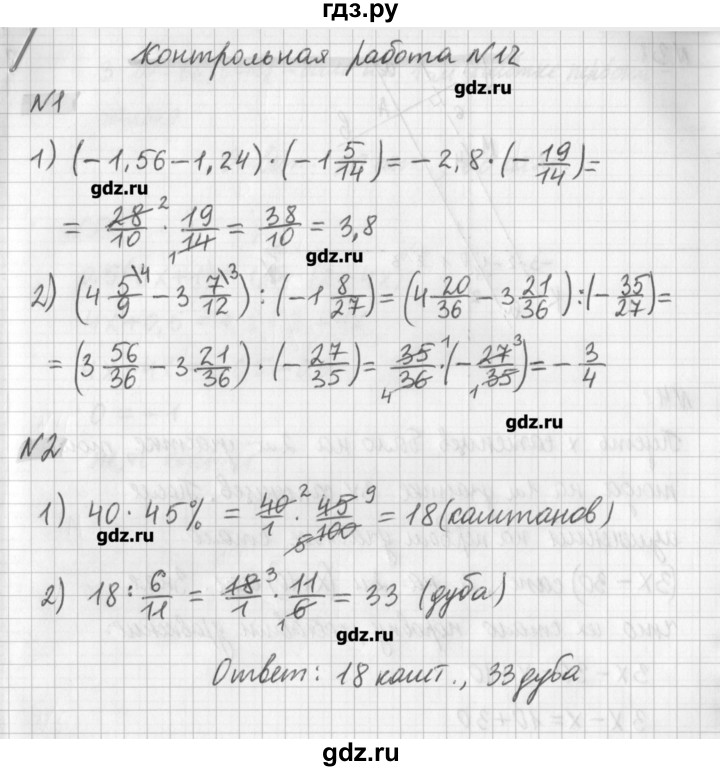 гдз.ру
Контрольная работа N12
gdz.ru
N1
1) (-1,56-1,24)·(-1 5/14)= -2,8·(-19/14)=
gdz.ru
= 28/10 ² · 19/14 ₁ = 38/10 = 3,8
gdz.ru
2) (4 5/9 \4 - 3 7/12 \3) : (-1 8/27)=(4 20/36 - 3 21/36):(-35/27)=
= (3 56/36 - 3 21/36) · (-27/35)= 35/36 ¹₄ · (-27/35 ³₁)= - 3/4
gdz.ru
N2
1) 40 · 45% = 40/1 ² · 45/100 ⁹₅ = 18(каштанов)
gdz.ru
2) 18 : 6/11 = 18/1 ³ · 11/6 ₁ = 33 (дуба)
gdz.ru
Ответ: 18 кашт., 33 дуба
gdz.ru